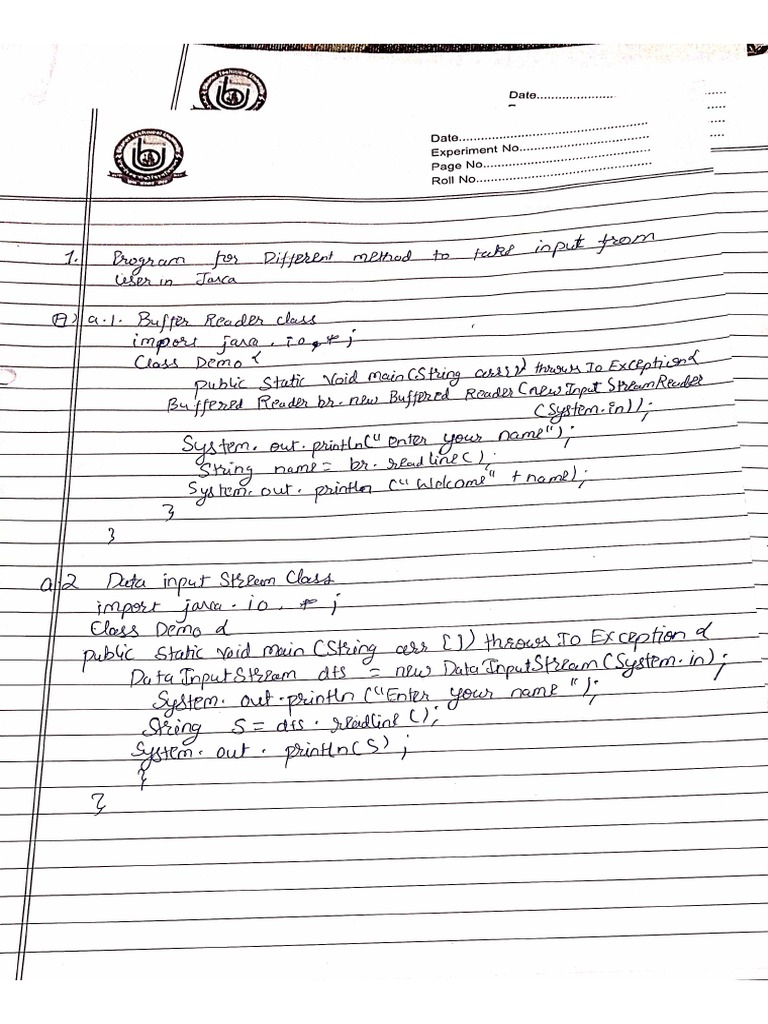 Date......................
Date....................................................
Experiment No....................................
Page No...............................................
Roll No.................................................
1. Program for Different method to take input from
user in Java
A) a.1. Buffer Reader class
import java.io.*;
Class Demo {
public Static void main(String arr[]) throws Io Exception {
Buffered Reader br. new Buffered Reader (new Input StreamReader
(System.in));
System.out.println("enter your name");
String name = br.readline();
System.out.println ("Welcome" + name);
}
}
a.2 Data input Stream Class
import java.io.*;
Class Demo {
public Static void main (String arr []) throws Io Exception {
Data InputStream dts = new Data InputStream (System.in);
System.out.println ("Enter your name");
String S = dts.readline();
System.out.println(S);
}
}